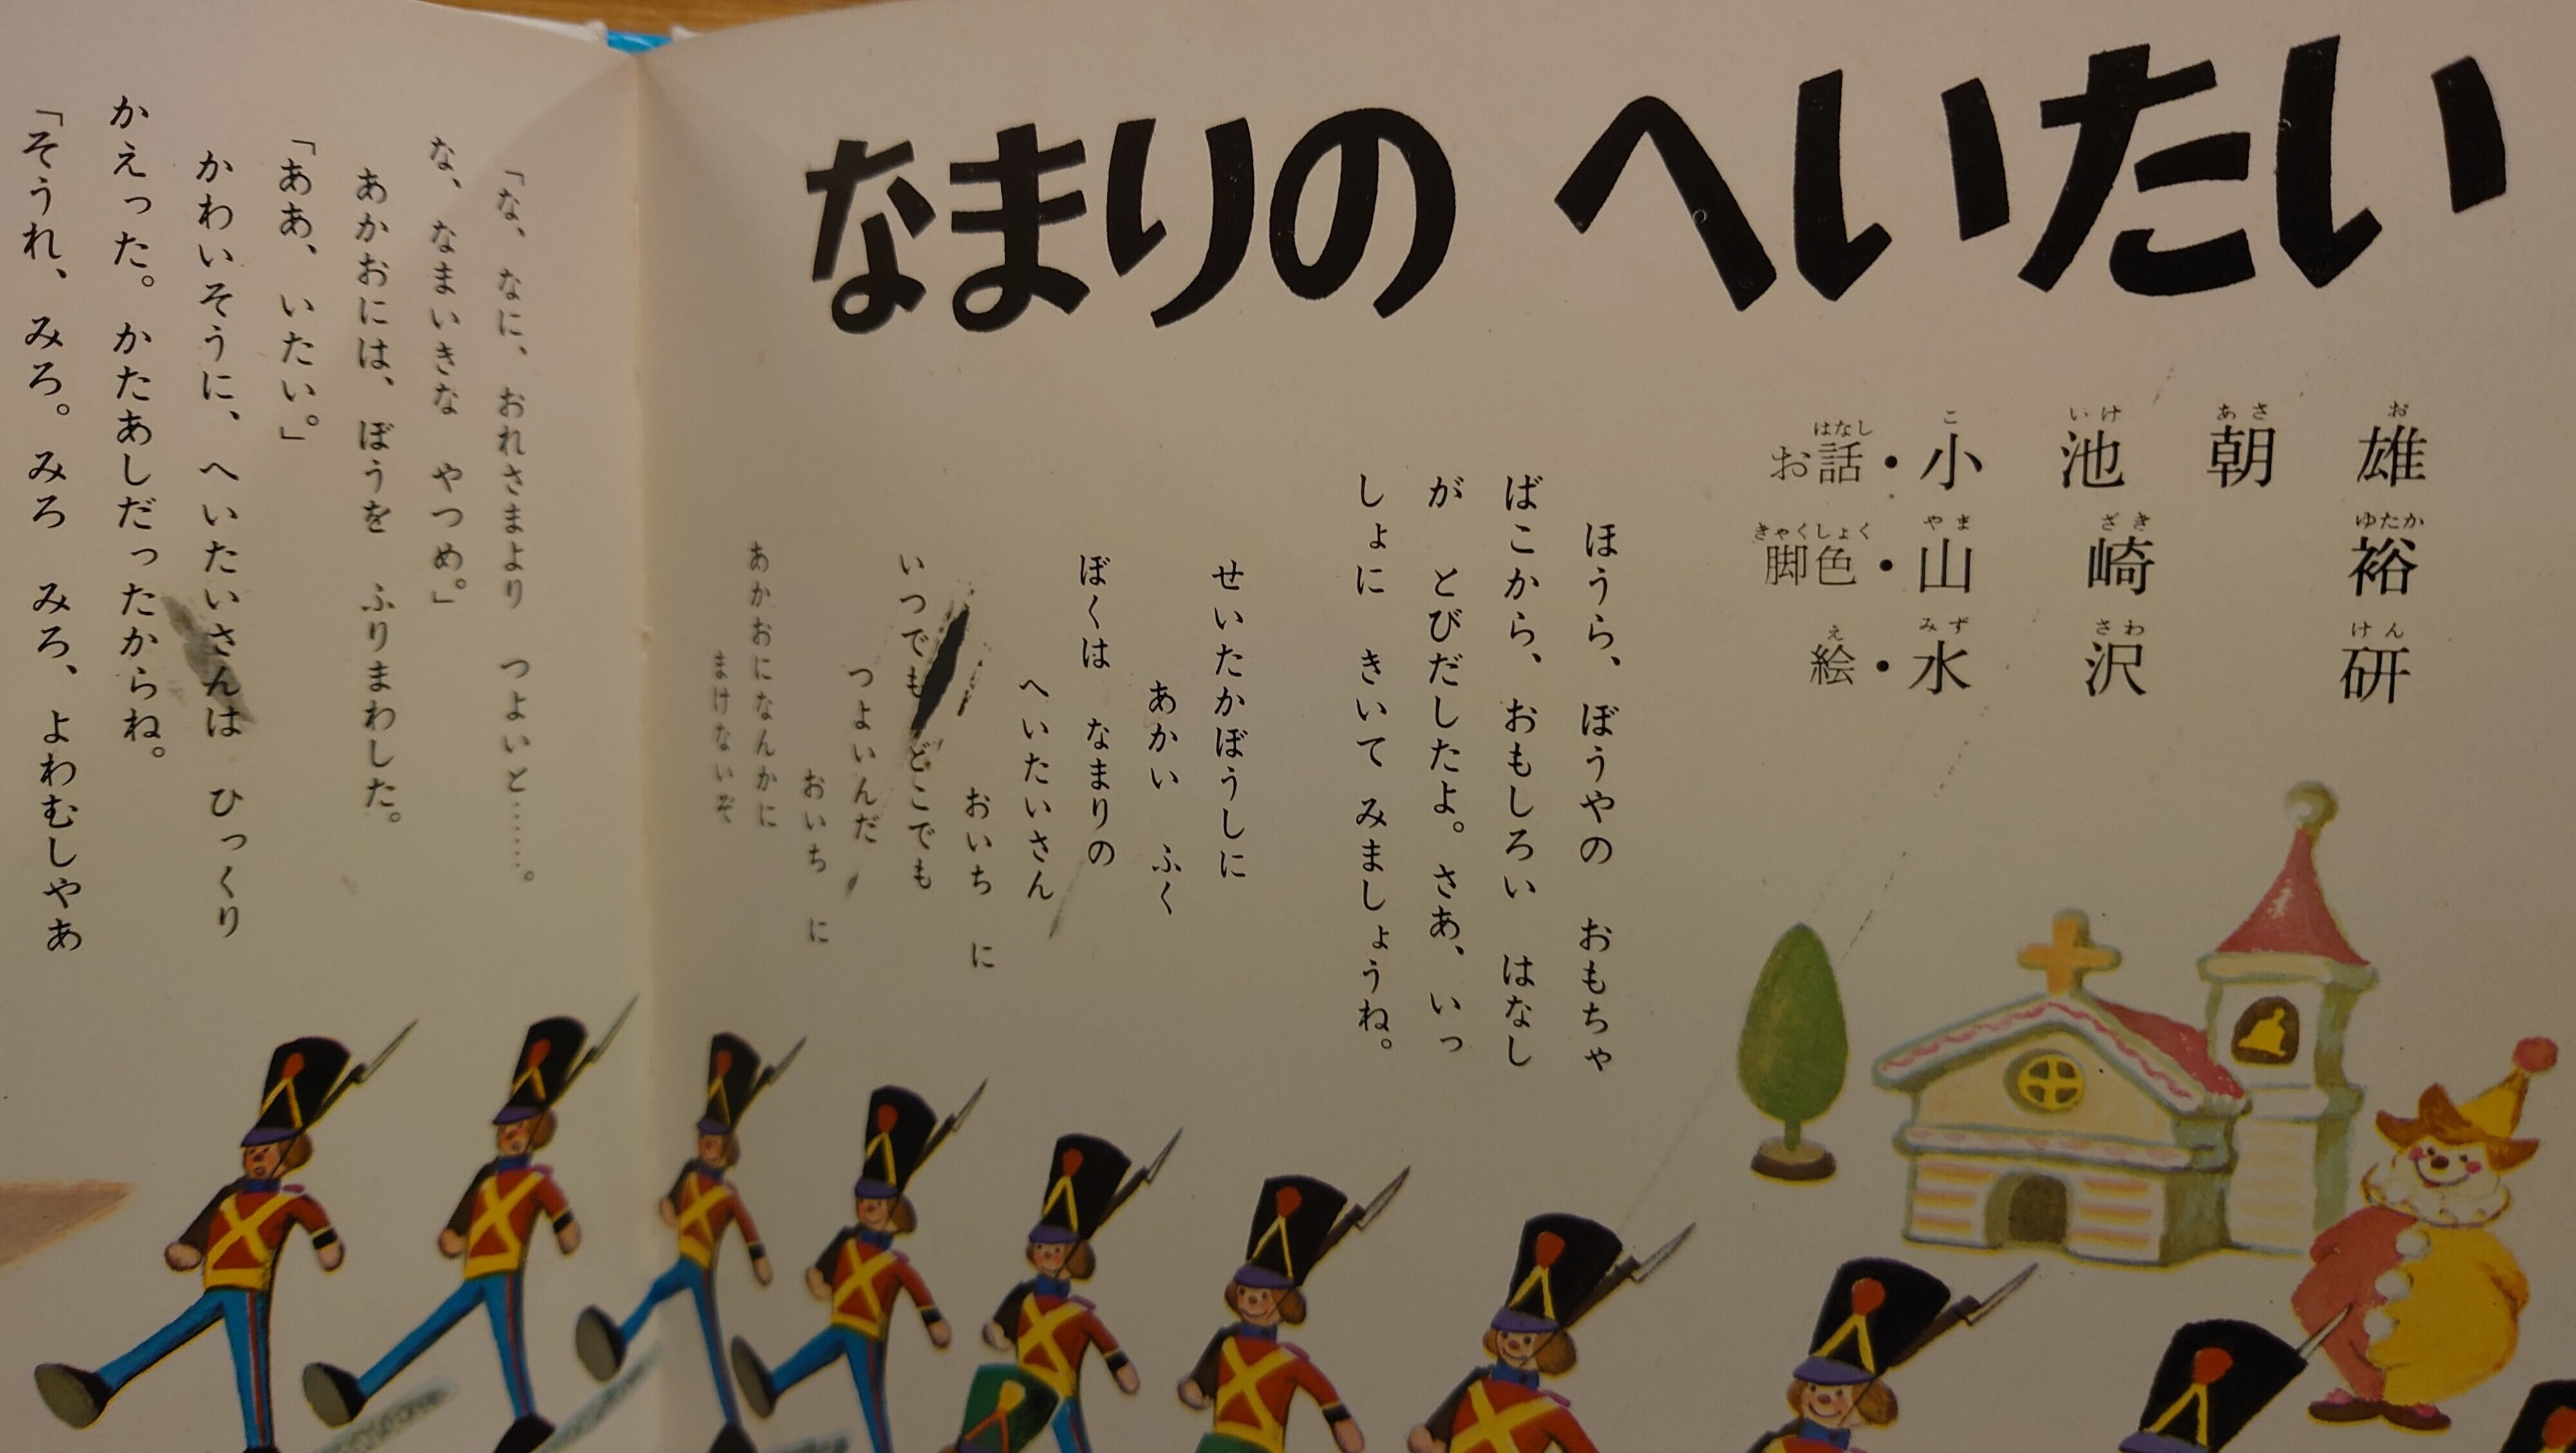 なまりの へいたい
お話・小池朝雄
はなし こ いけ あさ お
脚色・山崎裕
きゃくしょく やま ざき ゆたか
絵・水沢研
え みず さわ けん
ほうら、ぼうやの おもちゃ
ばこから、おもしろい はなし
が とびだしたよ。さあ、いっ
しょに きいて みましょうね。
せいたかぼうしに
あかい ふく
ぼくは なまりの
へいたいさん
おいち に
いつでも どこでも
つよいんだ
おいち に
あかおになんかに
まけないぞ
「な、なに、おれさまより つよいと……。
な、なまいきな やつめ。」
あかおには、ぼうを ふりまわした。
「ああ、いたい。」
かわいそうに、へいたいさんは ひっくり
かえった。かたあしだったからね。
「そうれ、みろ。みろ みろ、よわむしやあ